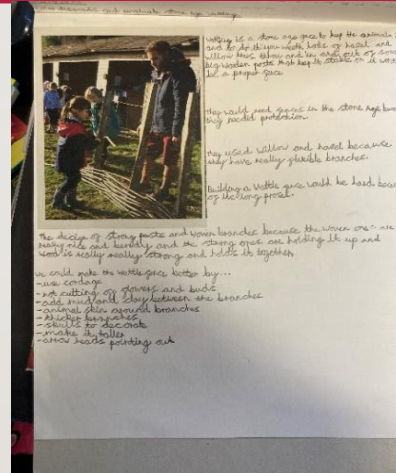 and evaluate stone age wattling.
wattling is a stone age fence to keep the animals
and to do it you weave lots of hazel and
willow
big wooden posts that keep it stable or it wont
be a proper fence
they would need fences in the stone age because
they needed protection.
they used willow and hazel because
they have really flexible branches.
Building a Wattle fence would be hard because
of the long proses.
the design of strong posts and woven branches because the woven one's are
really nice and bendy and the strong ones are holding it up and
wood is really really strong and holds it together
we could make the wattle fence better by...
-use cordage
-not cutting off flowers and buds
-add mud and clay between the branches
-animal skin around branches
-thicker branches
-skulls to decorate
-make it taller
-arrow heads pointing out